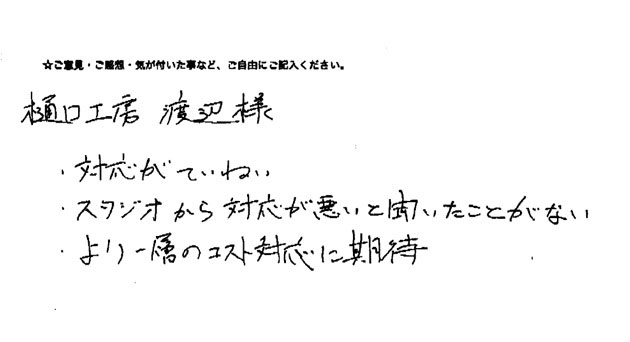 ☆ご意見・ご感想・気が付いた事など、ご自由にご記入ください。
樋口工房 渡辺様
・対応がていねい
・スタジオから対応が悪いと聞いたことがない
・より一層のコスト対応に期待